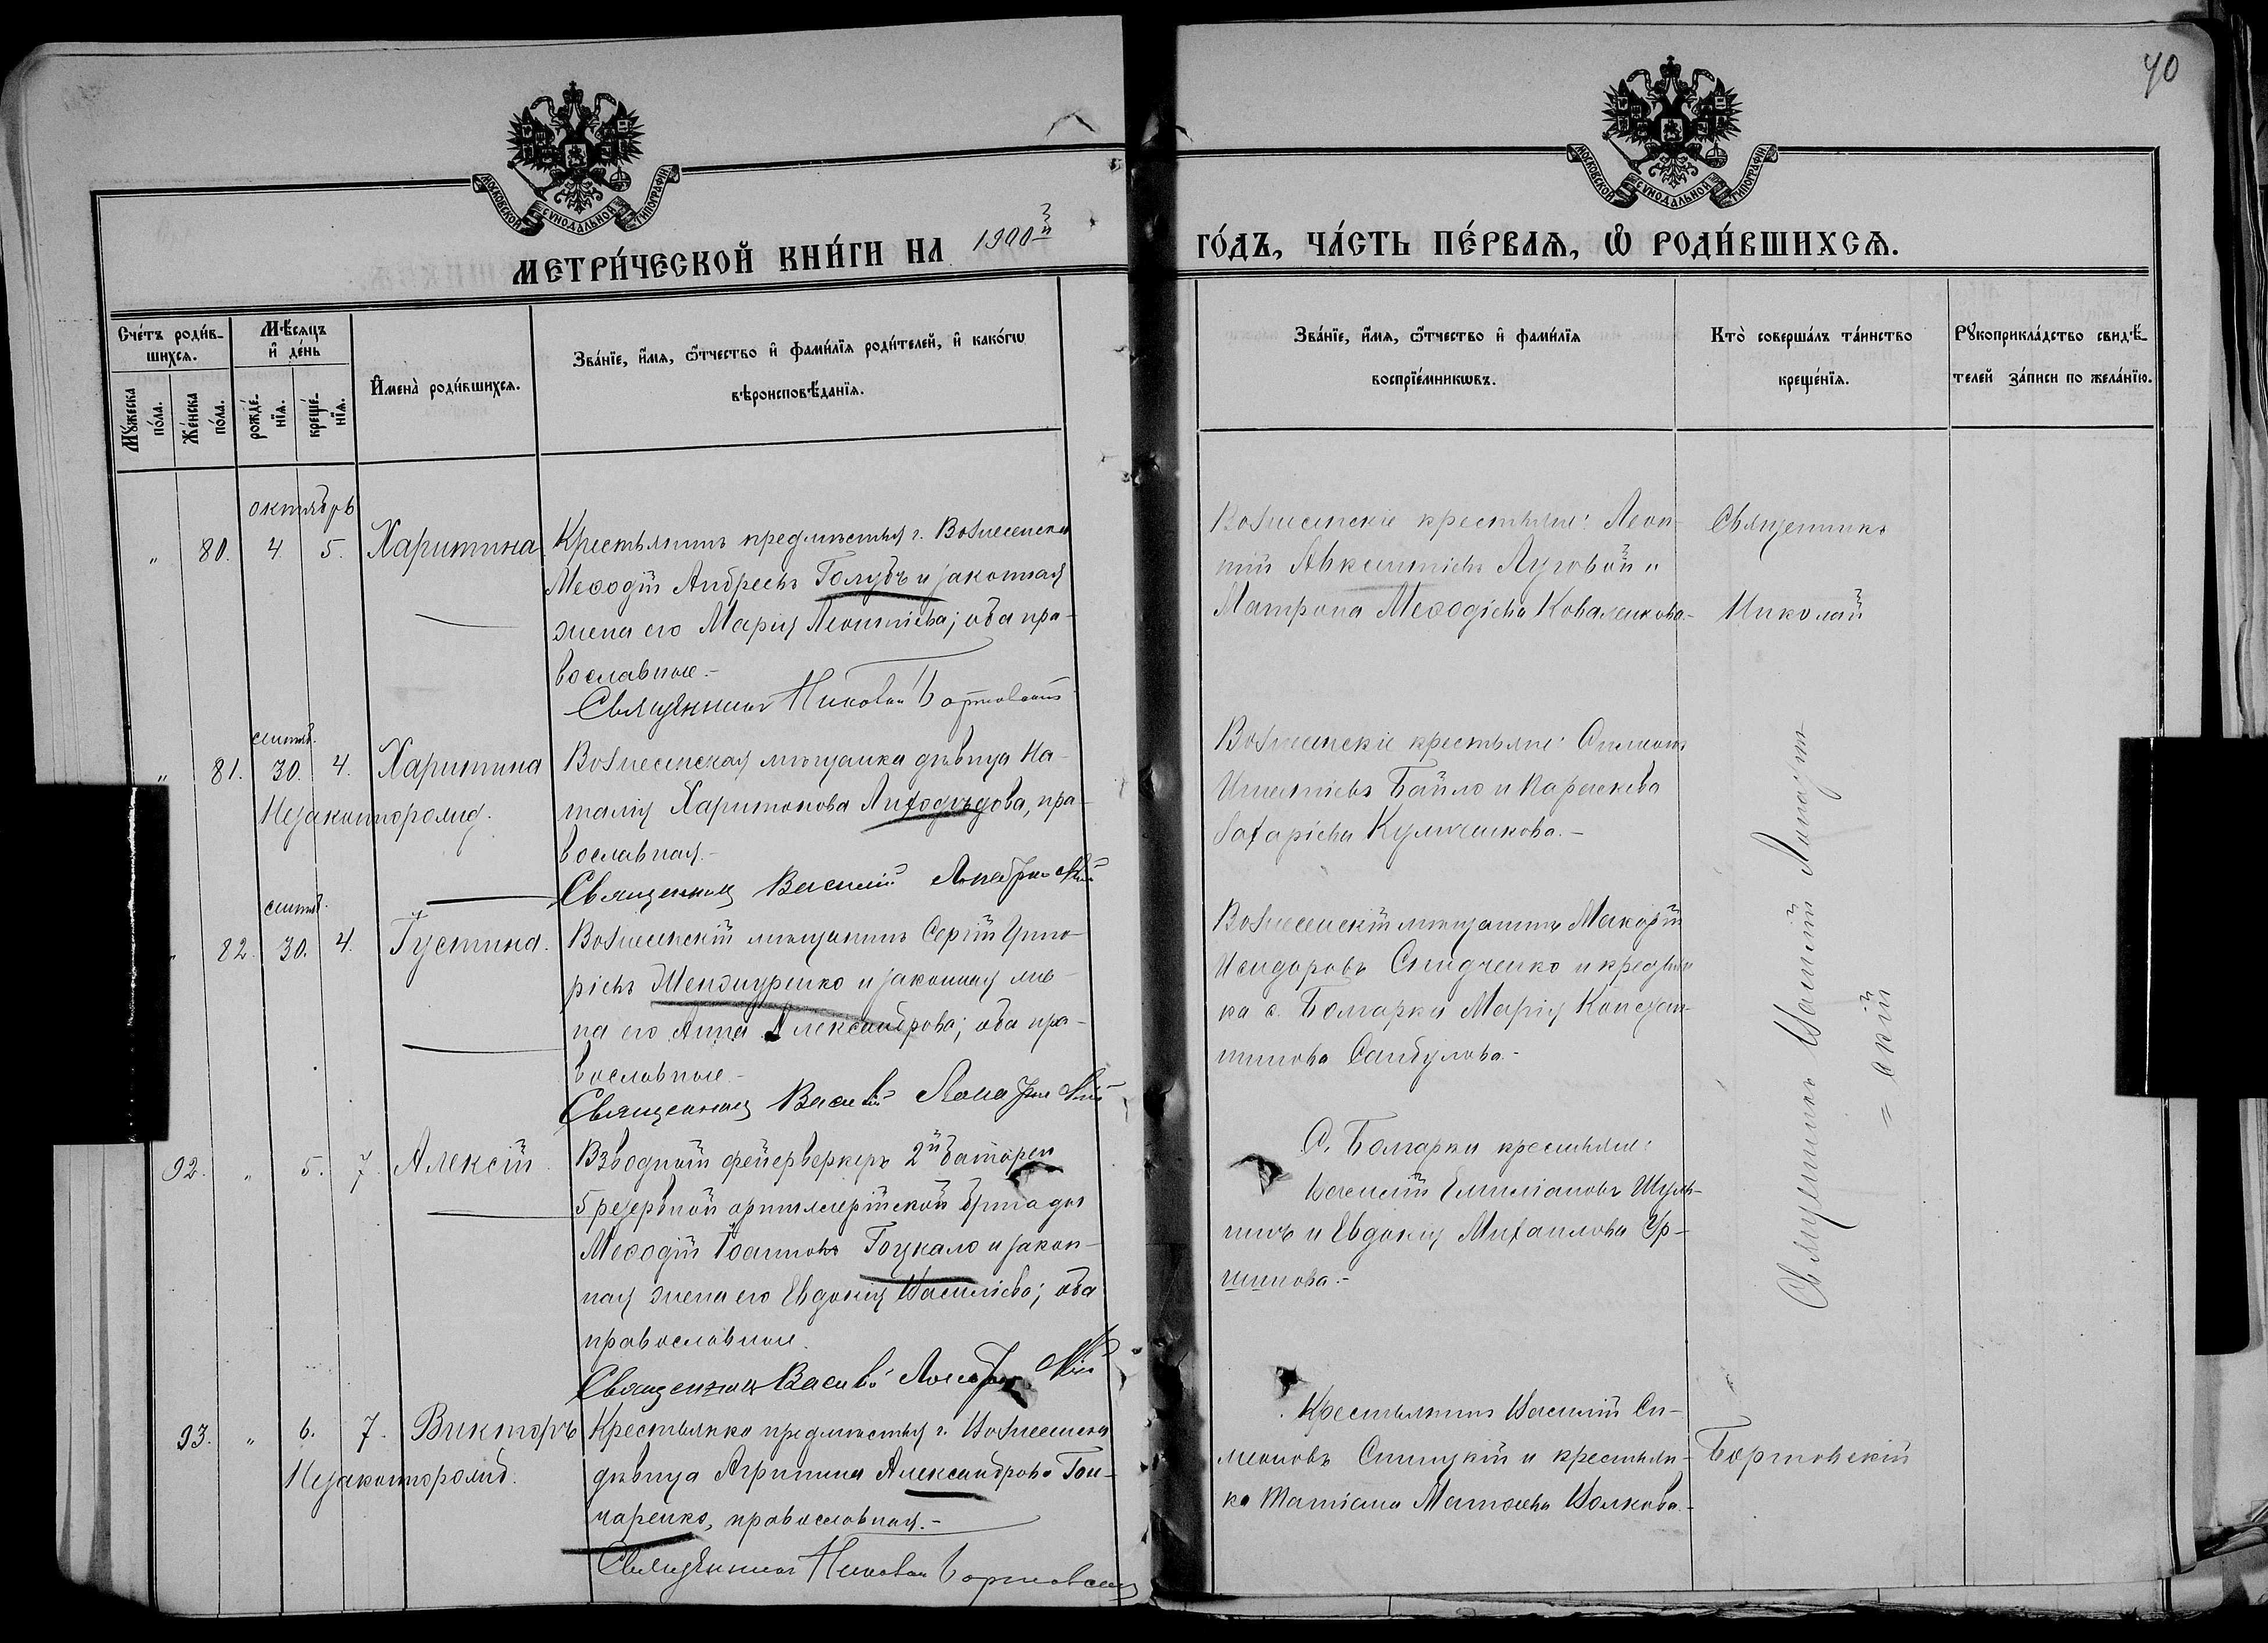 40
МОСКОВСКОЙ СѴНОДАЛЬНОЙ ТИПОГРАФІИ
МОСКОВСКОЙ СѴНОДАЛЬНОЙ ТИПОГРАФІИ
МЕТРИ́ЧЕСКОЙ КНИ́ГИ НА 1900й
ГО́ДЪ, ЧА́СТЬ ПЕ́РВАѦ, Ѡ РОДИ́ВШИХСѦ.
Сче́тъ роди́в-
шихсѧ.
Мꙋ́жеска по́ла.
Же́нска по́ла.
Мѣ́сѧцъ и҆ де́нь
рожде́-нїѧ.
креще́-нїѧ.
И҆мена̀ роди́вшихсѧ.
Зва́нїе, и҆́мѧ, ѻ҆́тчество и҆ фами́лїѧ роди́телей, и҆ како́гѡ
вѣроисповѣ́данїѧ.
Зва́нїе, и҆́мѧ, ѻ҆́тчество и҆ фами́лїѧ
воспрїе́мникѡвъ.
Кто̀ соверша́лъ та́инство
креще́нїѧ.
Рꙋкоприкла́дство свидѣ́-
телей за́писи по жела́нїю.
октябрь
" 80. 4. 5. Харитина
Крестьянинъ предмѣстья г. Вознесенска
Меѳодій Андреевъ Голубъ и законная
жена его Марія Леонтіева; оба пра-
вославные.-
Священникъ Николай Бортовскій
Вознесенскіе крестьяне: Леон-
тій Авксентіевъ Луговой и
Матрона Меѳодіева Коваленкова.-
Священникъ
Николай
сентяб.
" 81. 30. 4. Харитина
Незаконнорожд.
Вознесенская мѣщанка дѣвица На-
талія Харитонова Лиходѣдова, пра-
вославная.-
Священникъ Василій
Вознесенскіе крестьяне: Симеонъ
Игнатіевъ Байло и Параскева
Захаріева Кульченкова.-
сентяб.
" 82. 30. 4. Іустина.
Вознесенскій мѣщанинъ Сергій Григо-
ріевъ Шенжуренко и законная же-
на его Анна Александрова; оба пра-
вославные.-
Священникъ Василій
Вознесенскій мѣщанинъ Макарій
Исидоровъ Спидченко и крестьян
ка с. Болгарки Марія Констан-
тинова Самбулова.-
Священникъ Василій
= скій
92. " 5. 7. Алексій.
Взводный фейерверкеръ 2й батареи
5 резервной артиллерійской бригады
Меѳодій Іоанновъ Гоцкало и закон-
ная жена его Евдокія Васильева; оба
православные.
Священникъ Василій
С. Болгарки крестьяне:
Василій Емиліановъ Шуль-
гинъ и Евдокія Михаилова Ур-
шинова.-
93. " 6. 7. Викторъ
Незаконнорожд.
Крестьянка предмѣстья г. Вознесенска
дѣвица Агрипина Александрова Гон-
чаренко, православная.-
Священникъ Николай Бортовскій
Крестьянинъ Василій Си-
меоновъ Спицкій и крестьян-
ка Татіана Матѳеева Волкова.-
Бортовскій